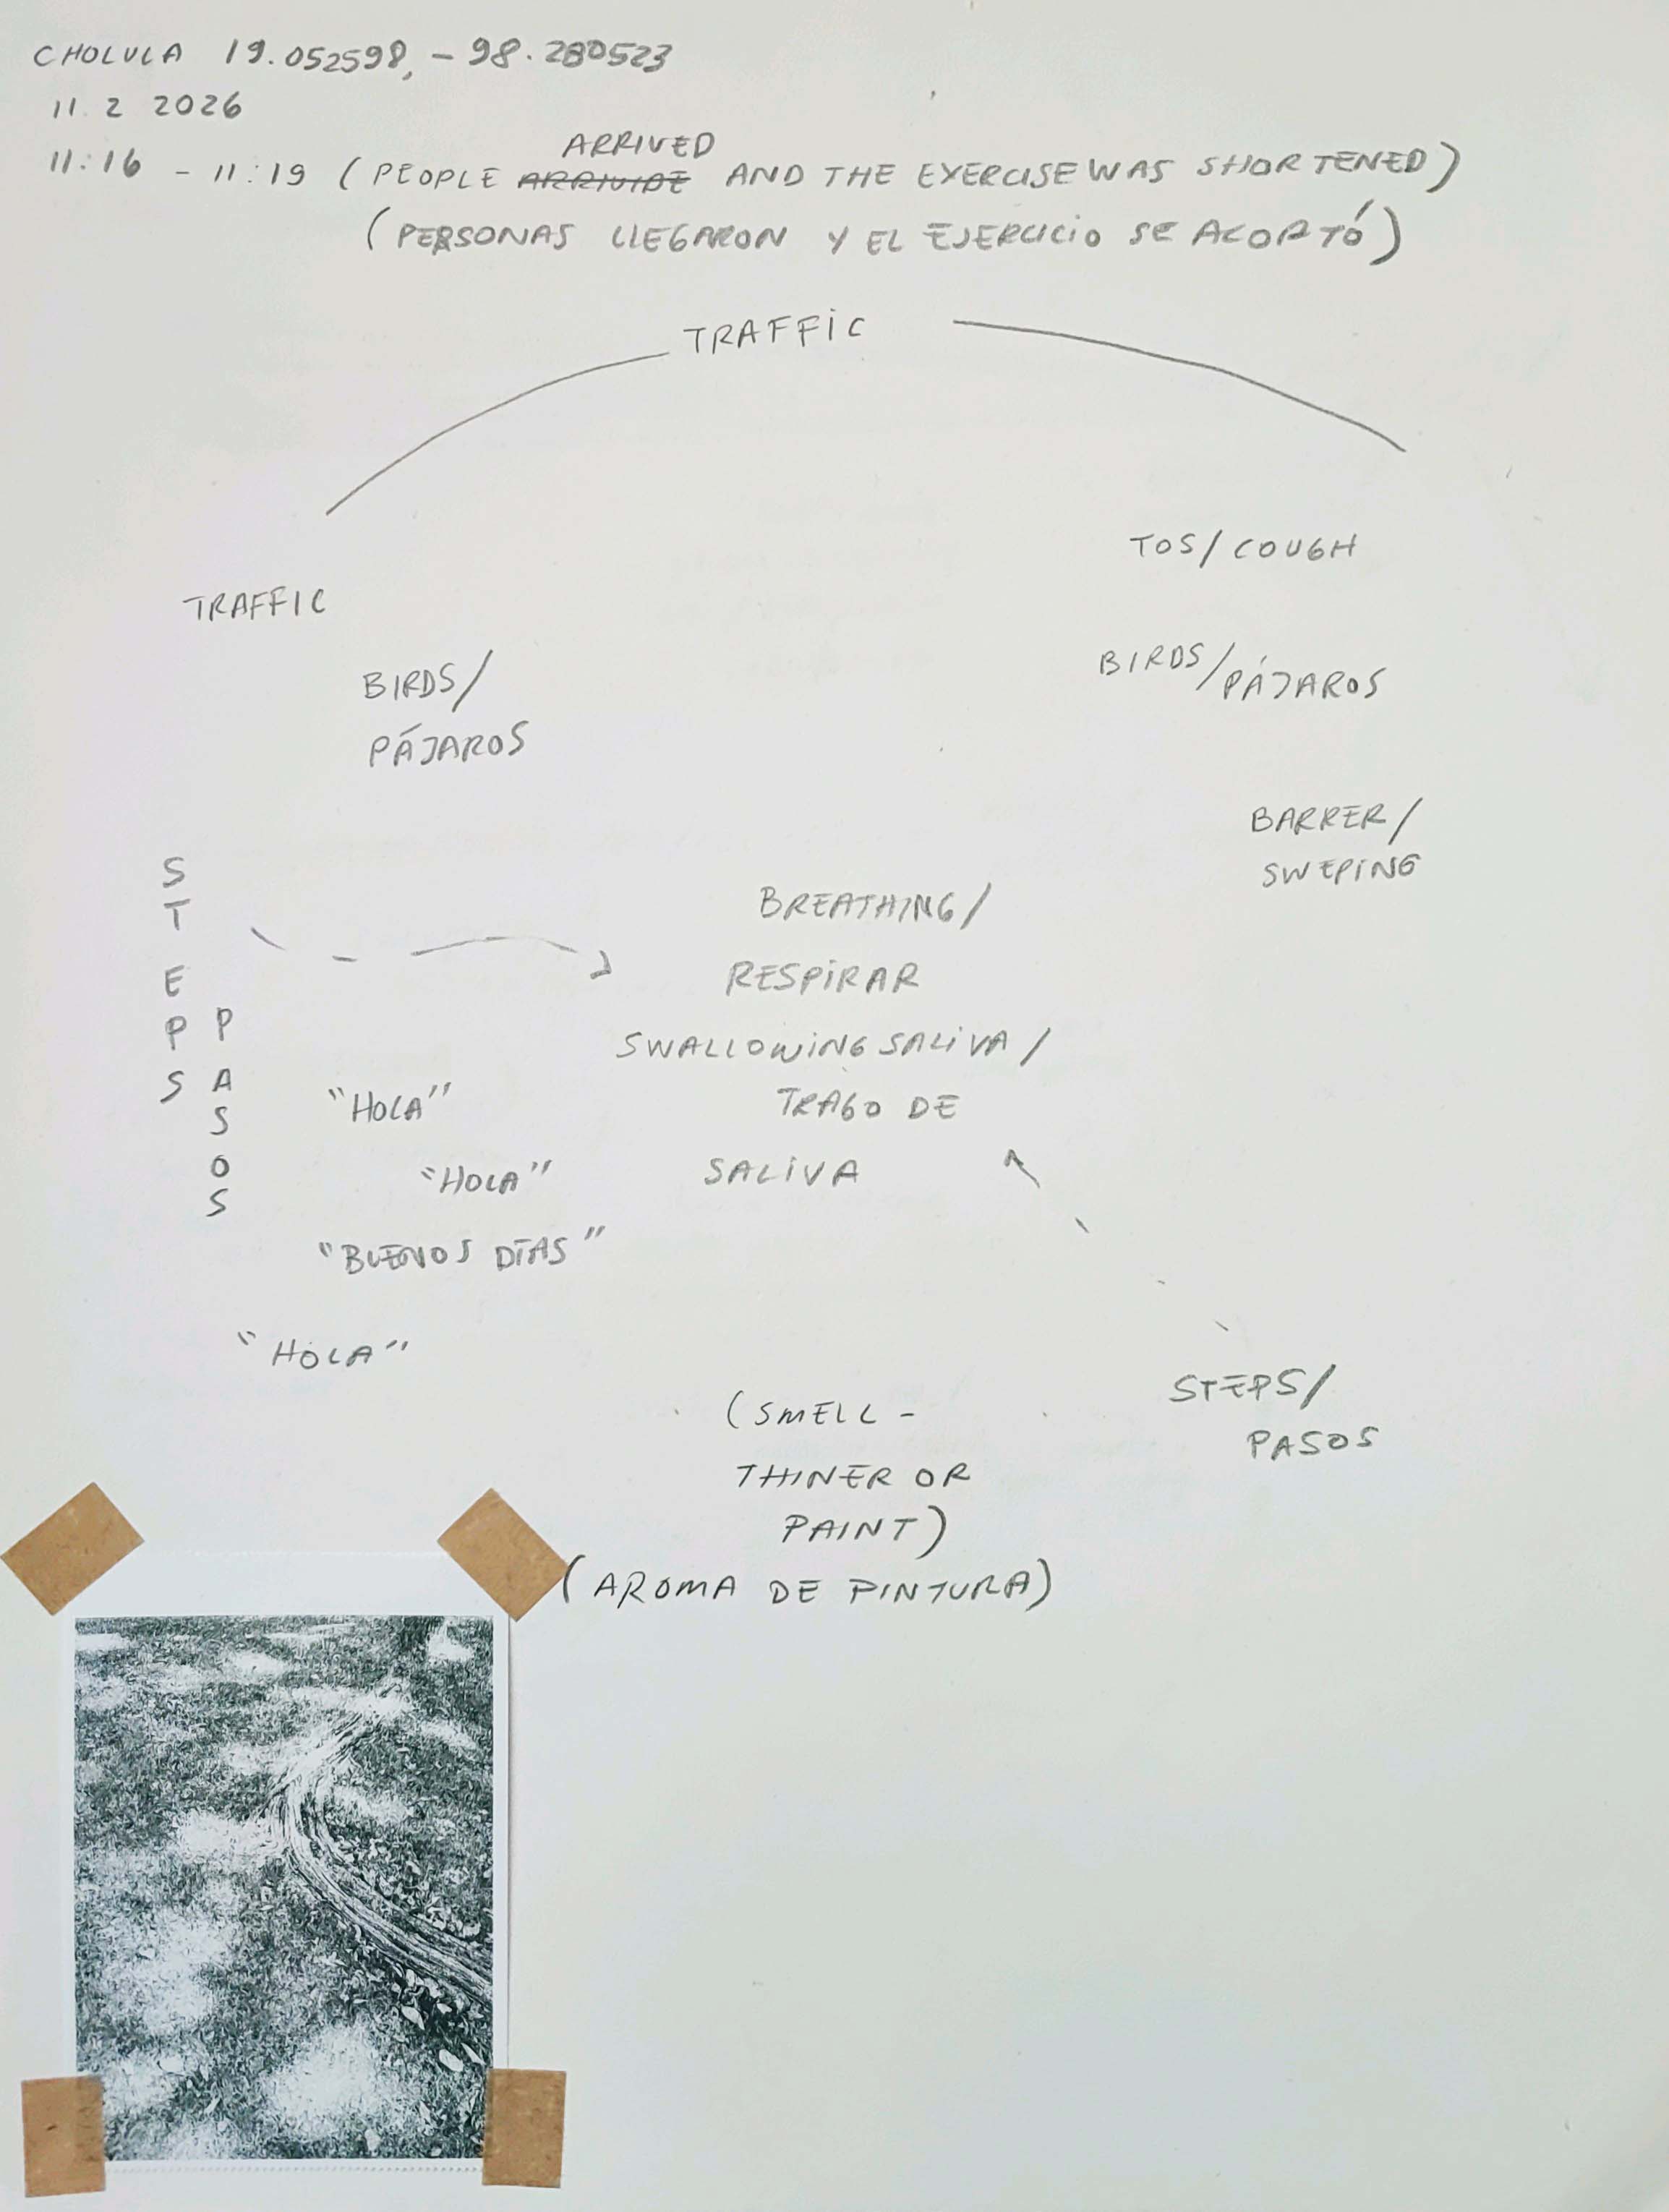 CHOLULA 19.052598, -98.280523
11. 2 2026
ARRIVED
11:16 - 11:19 (PEOPLE ARRIVIDE AND THE EXERCISE WAS SHORTENED)
(PERSONAS LLEGARON Y EL EJERCICIO SE ACORTÓ)
TRAFFIC
TOS/COUGH
TRAFFIC
BIRDS/
PÁJAROS
BIRDS/PÁJAROS
BARRER/
SWEPING
STEPS
PASOS
BREATHING/
RESPIRAR
SWALLOWING SALIVA/
TRAGO DE
SALIVA
"HOLA"
"HOLA"
"BUENOS DÍAS"
"HOLA"
STEPS/
PASOS
(SMELL -
THINER OR
PAINT)
(AROMA DE PINTURA)